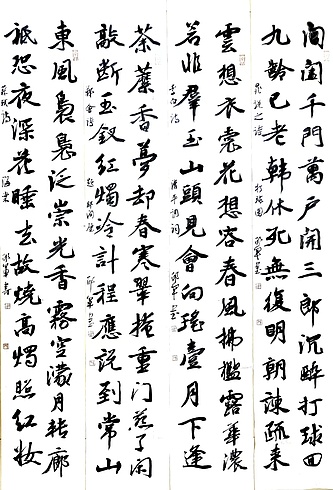 閶闔千門萬戶開三郎沉醉打球回
九齡已老韓休死無復明朝諫疏來
晁說之詩 打球圖
雲想衣裳花想容春風拂檻露華濃
若非羣玉山頭見會向瑤臺月下逢
李白詩 清平調詞
荼蘼香夢却春寒翠掩重門燕子閑
敲斷玉釵紅燭冷計程應說到常山
鄭會詩 題邸間壁
東風裊裊泛崇光香霧空濛月轉廊
祗恐夜深花睡去故燒高燭照紅妝
蘇軾詩 海棠